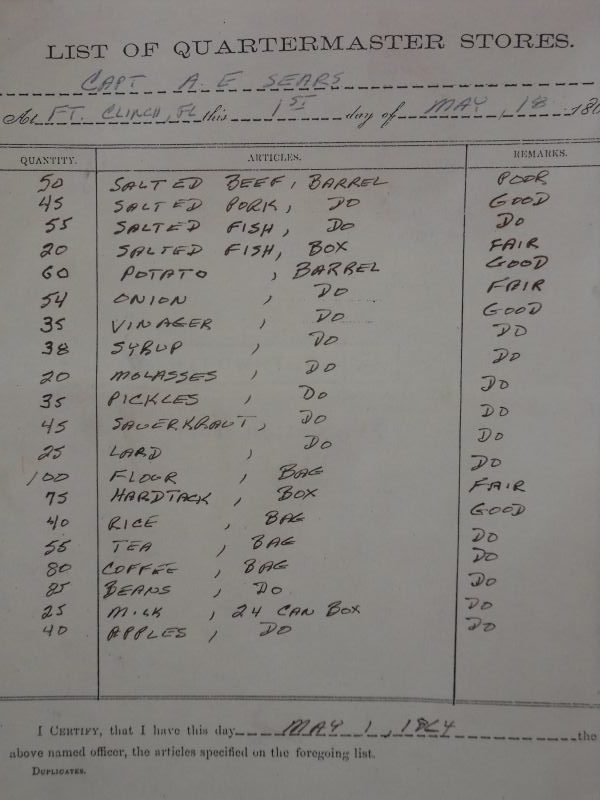 LIST OF QUARTERMASTER STORES.
CAPT A. E SEARS
At FT. CLINCH, FL this 1ST day of MAY, 18 186
QUANTITY. ARTICLES. REMARKS.
50 SALTED BEEF, BARREL POOR
45 SALTED PORK, DO GOOD
55 SALTED FISH, DO DO
20 SALTED FISH, BOX FAIR
60 POTATO , BARREL GOOD
54 ONION , DO FAIR
35 VINAGER , DO GOOD
38 SYRUP , DO DO
20 MOLASSES , DO DO
35 PICKLES , DO DO
45 SAUERKRAUT, DO DO
25 LARD , DO DO
100 FLOUR , BAG DO
75 HARDTACK , BOX FAIR
40 RICE , BAG GOOD
55 TEA , BAG DO
80 COFFEE , BAG DO
85 BEANS , DO. DO
25 MILK , 24 CAN BOX DO
40 APPLES , DO DO
I CERTIFY, that I have this day MAY 1, 1864 the
above named officer, the articles specified on the foregoing list.
DUPLICATES.